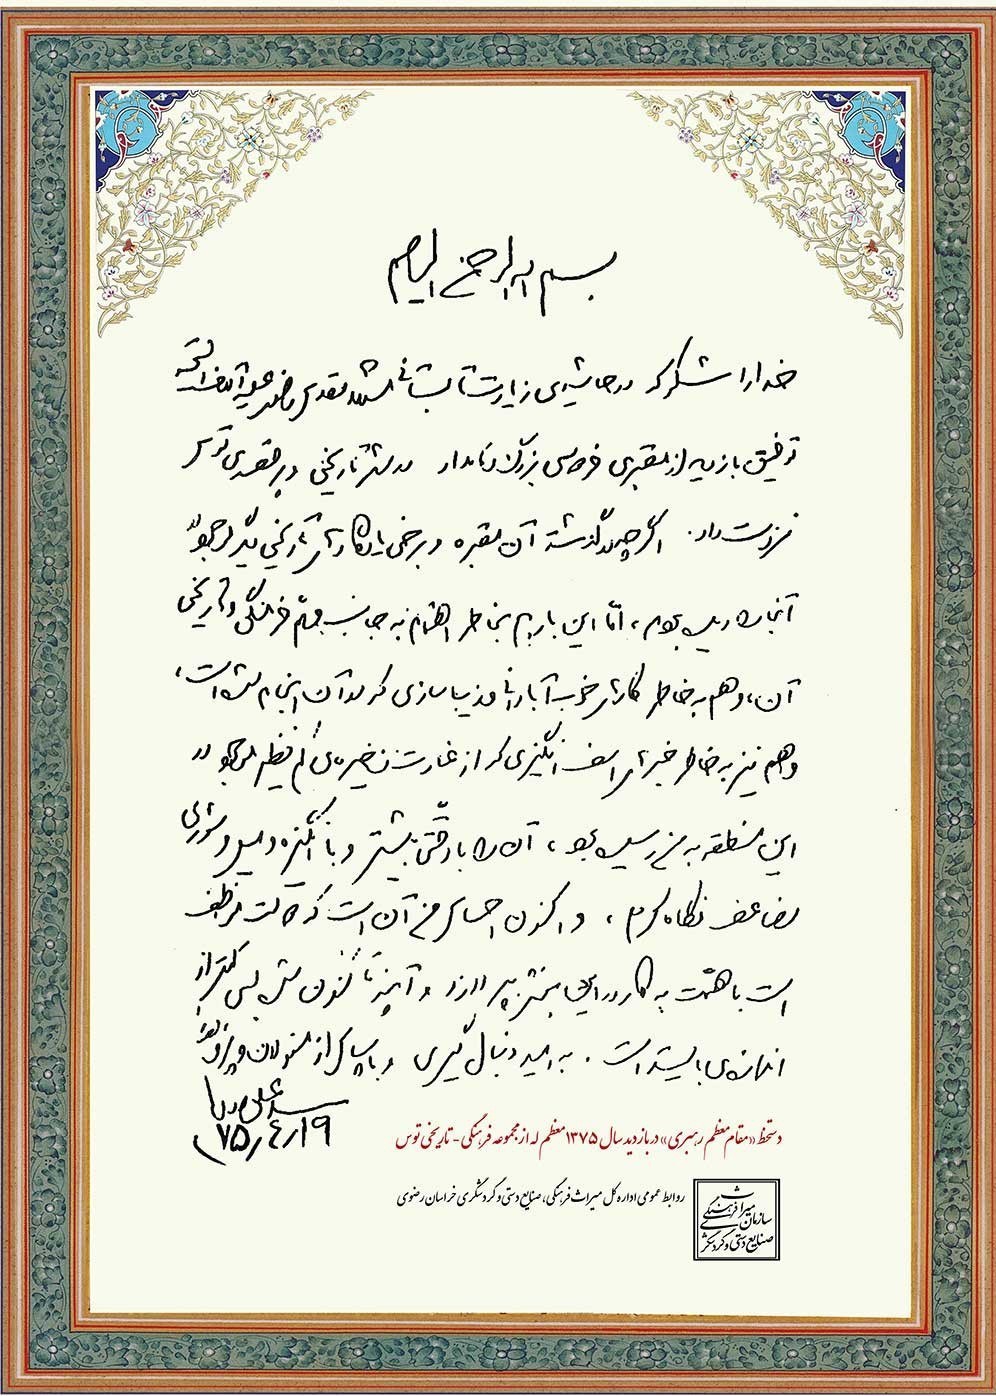 بسم الله الرحمن الرحیم
خدا را شکر که در حاشیه‌ی زیارت شتابناک مشهد مقدس
توفیق بازدید از مقبره‌ی فردوسی بزرگ و نامدار در شهر تاریخی و پرقصه‌ی توس
نیز دست داد. اگرچه در گذشته آن مقبره و برخی یادگارهای تاریخی دیگر موجود در
آنجا را دیده بودم، امّا این بار هم بخاطر اهتمام به جانب مهمّ فرهنگی و تاریخی
آن، و هم به خاطر کارهای خوب آبادانی و زیباسازی که در آن انجام شده است،
و هم نیز به خاطر خبرهای اسف انگیزی که از غارت ذخیره‌های کم نظیر موجود در
این منطقه به من رسیده بود، آن را با دقّتی بیشتر و با انگیزه و میل و شوری
مضاعف نگاه کردم، و اکنون احساس من آن است که دولت موظف
است با همّت به کار در این بخش بپردازد و آنچه تاکنون شده بسی کمتر از
اندازه‌ی بایسته است. به امید دنبال‌گیری و با سپاس از مسئولان و
سید علی خامنه‌ای
۷۵/۴/۱۹
دستخط «مقام معظم رهبری» در بازدید سال ۱۳۷۵ معظم له از مجموعه فرهنگی - تاریخی توس
روابط عمومی اداره کل میراث فرهنگی، صنایع دستی و گردشگری خراسان رضوی
سازمان میراث فرهنگی
صنایع دستی و گردشگری